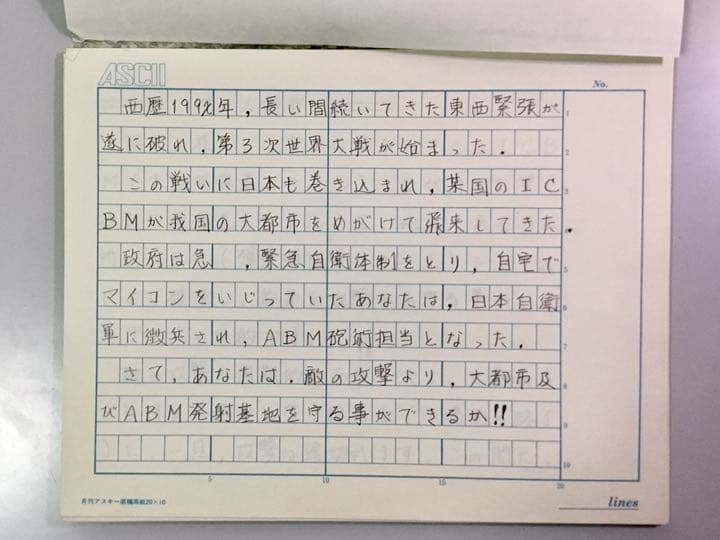 ASCII
No.
西歴199X年，長い間続いてきた東西緊張が
遂に破れ，第3次世界大戦が始まった．
この戦いに日本も巻き込まれ，某国のIC
BMが我国の大都市をめがけて飛来してきた．
政府は急，緊急自衛体制をとり，自宅で
マイコンをいじっていたあなたは，日本自衛
軍に徴兵され，ABM砲術担当となった．
さて，あなたは，敵の攻撃より，大都市及
びABM発射基地を守る事ができるか!!
1
2
3
4
5
6
7
8
9
10
5
10
15
20
月刊アスキー原稿用紙20×10
lines